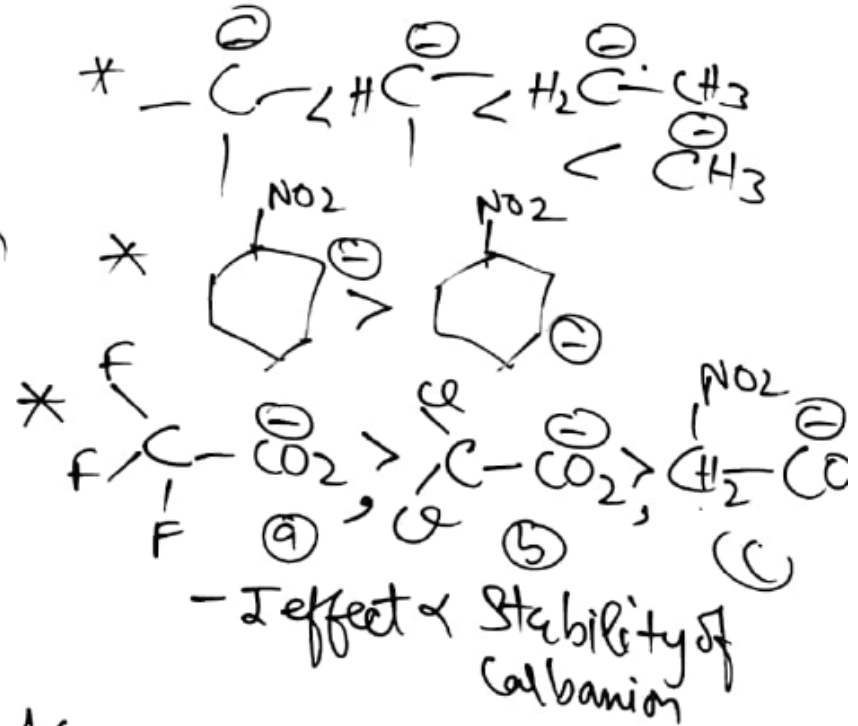 * –C⊖– < HC⊖– < H2C⊖–CH3
< C⊖H3
* NO2 ⊖ > NO2 ⊖
* F F F C–CO2⊖ > , Cl Cl C–CO2⊖ > , NO2 CH2–CO⊖
(a) (b) (c)
– I effect ∝ Stability of
Calbanion